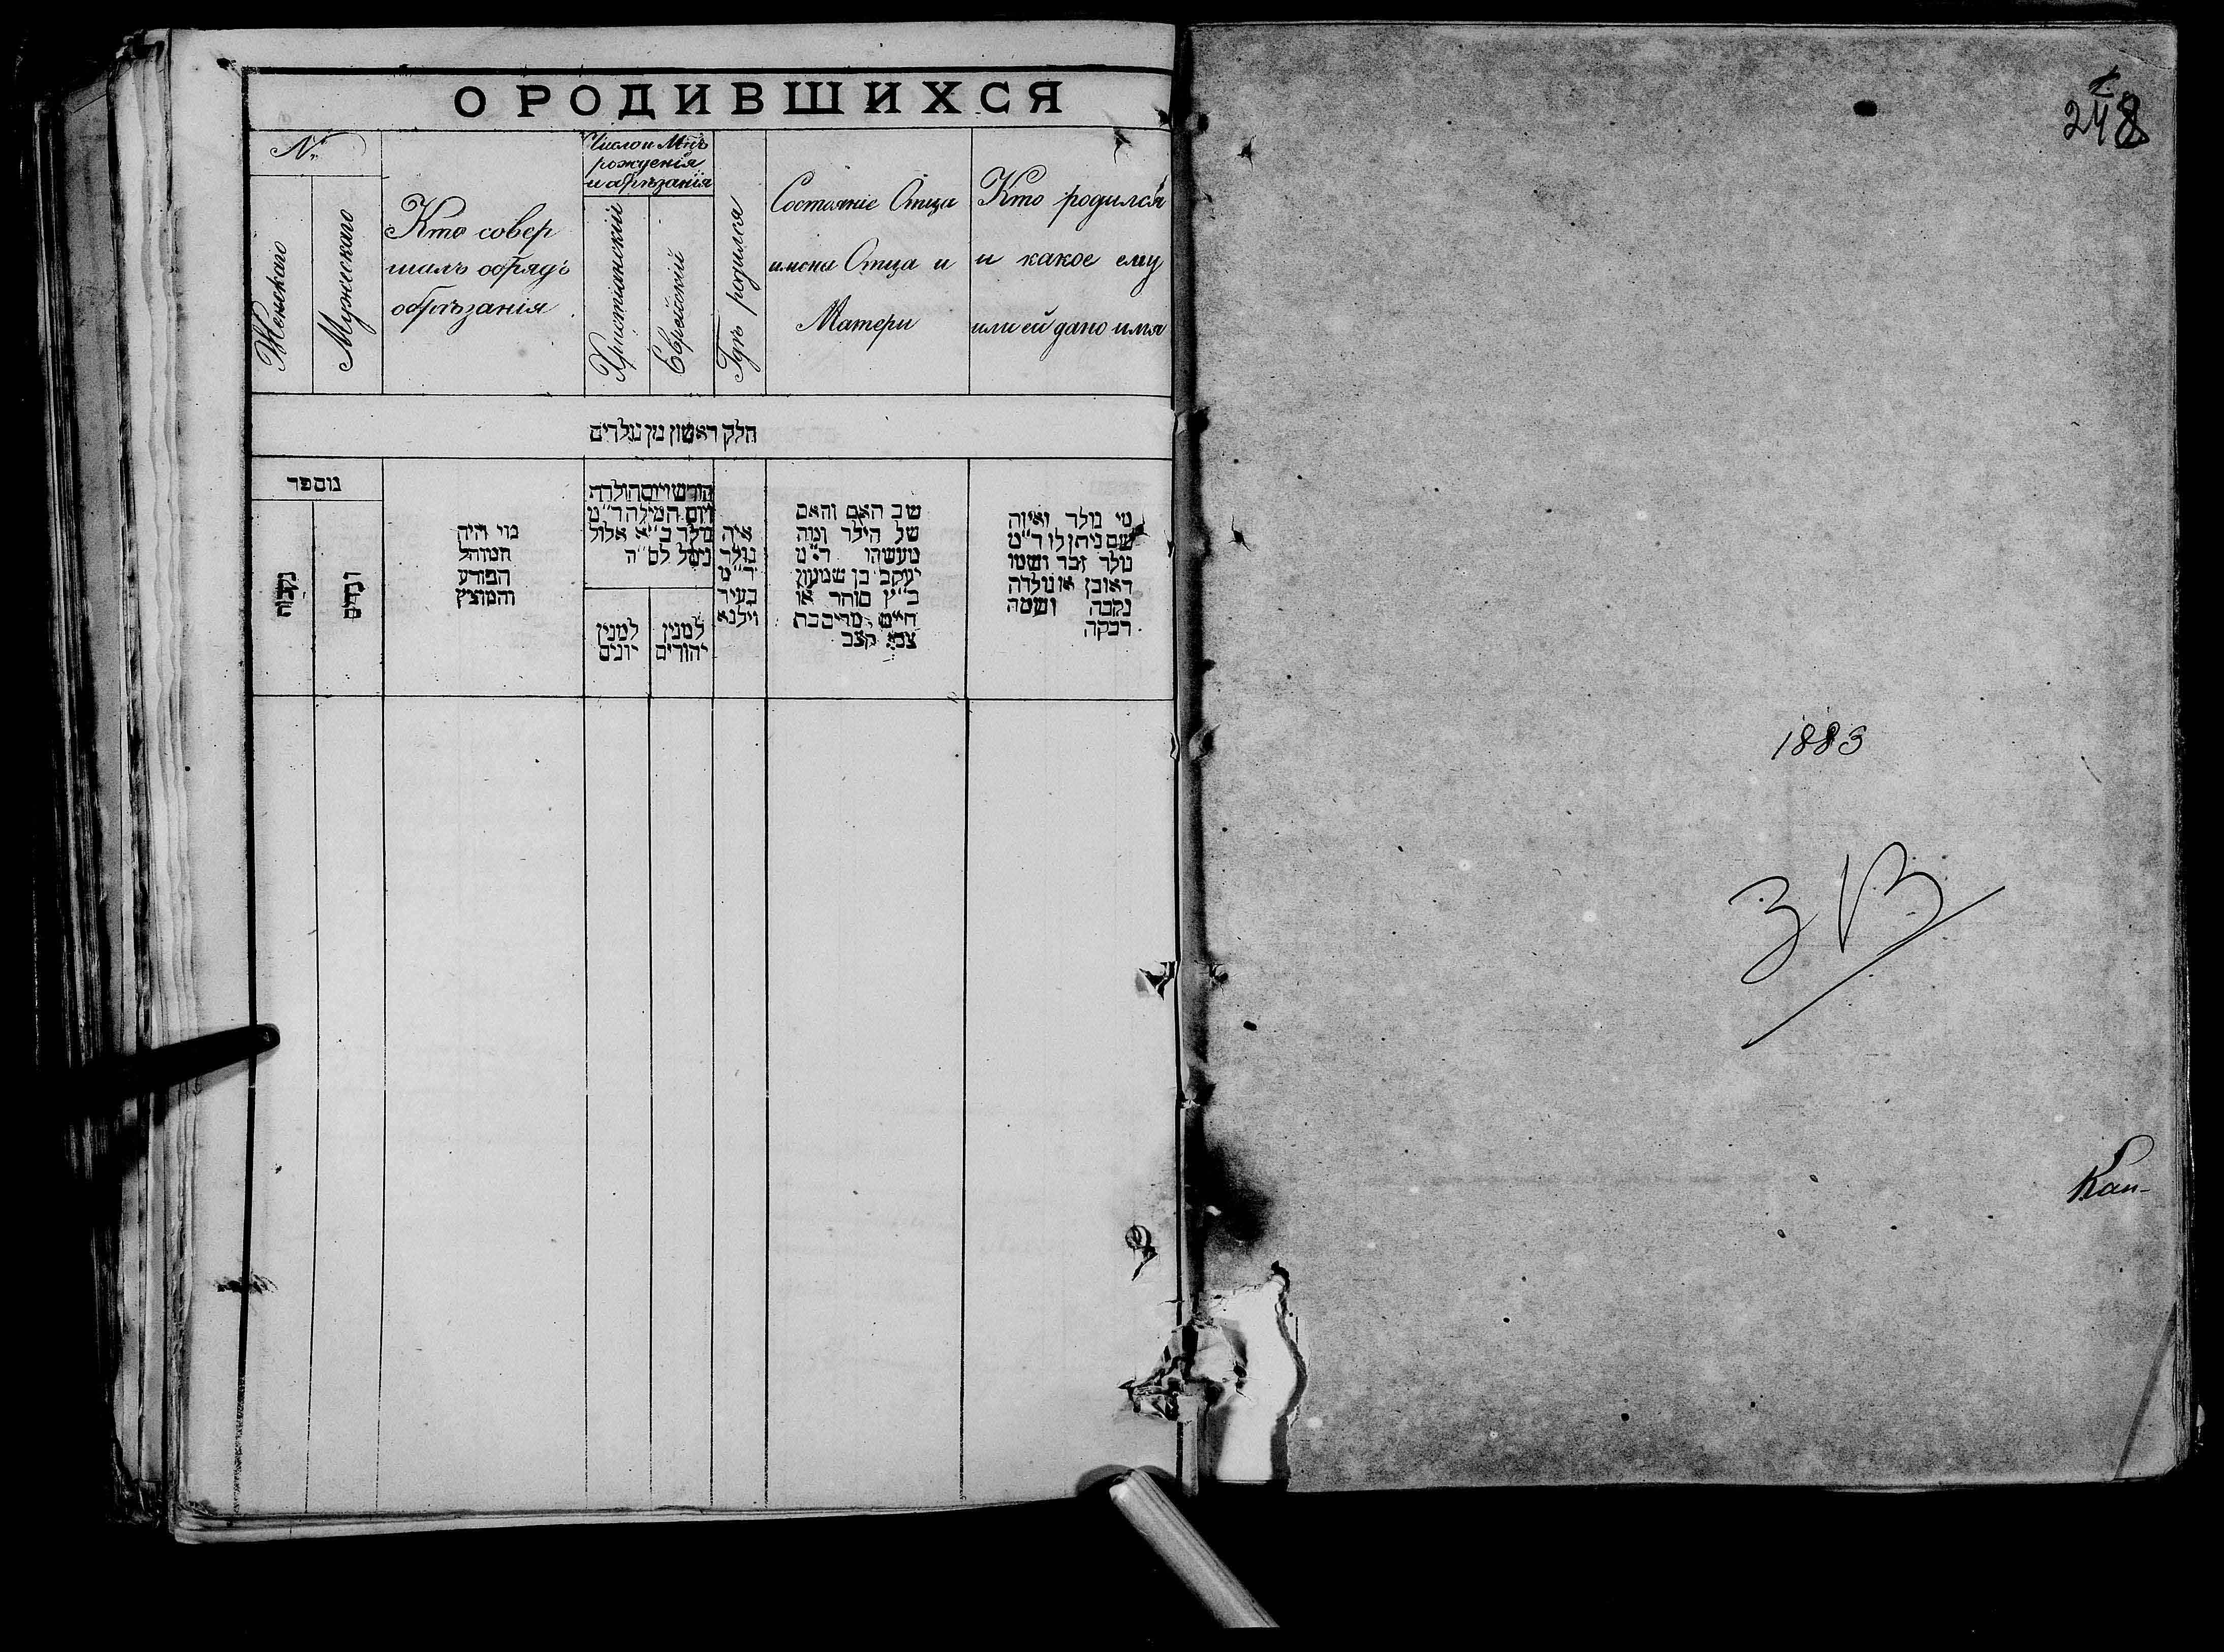 О РОДИВШИХСЯ
№
Женскаго
Мужескаго
Кто совер
шалъ обрядъ
обрѣзанія
Число и Мѣц
рожденія
и обрѣзанія
Христіянскій
Еврейскій
Гдѣ родился
Состояніе Отца
имена Отца и
Матери
Кто родился
и какое ему
или ей дано имя
חלק ראשון מן נולדים
מוספר
נקבות
זכרים
מוי היה
המוהל
הפורע
והמוציץ
חודש ויום הולדת
ויום המילה ד״מ
נולד ב״א אלול
נימל לם״ה
למנין
יונים
למנין
יהודים
איה
נולד
ד״מ
בעיר
וילנא
שב האם והאם
של הילד ומה
מעשהו ד״מ
יעקב בן שמעון
כ״ץ סוחר או
חיים מרים בת
קצב
מי נולד ואיזה
שם ניתן לו ד״מ
נולד זכר ושמו
ראובן או נולדה
נקבה ושמה
רבקה
248
1883
Кан-